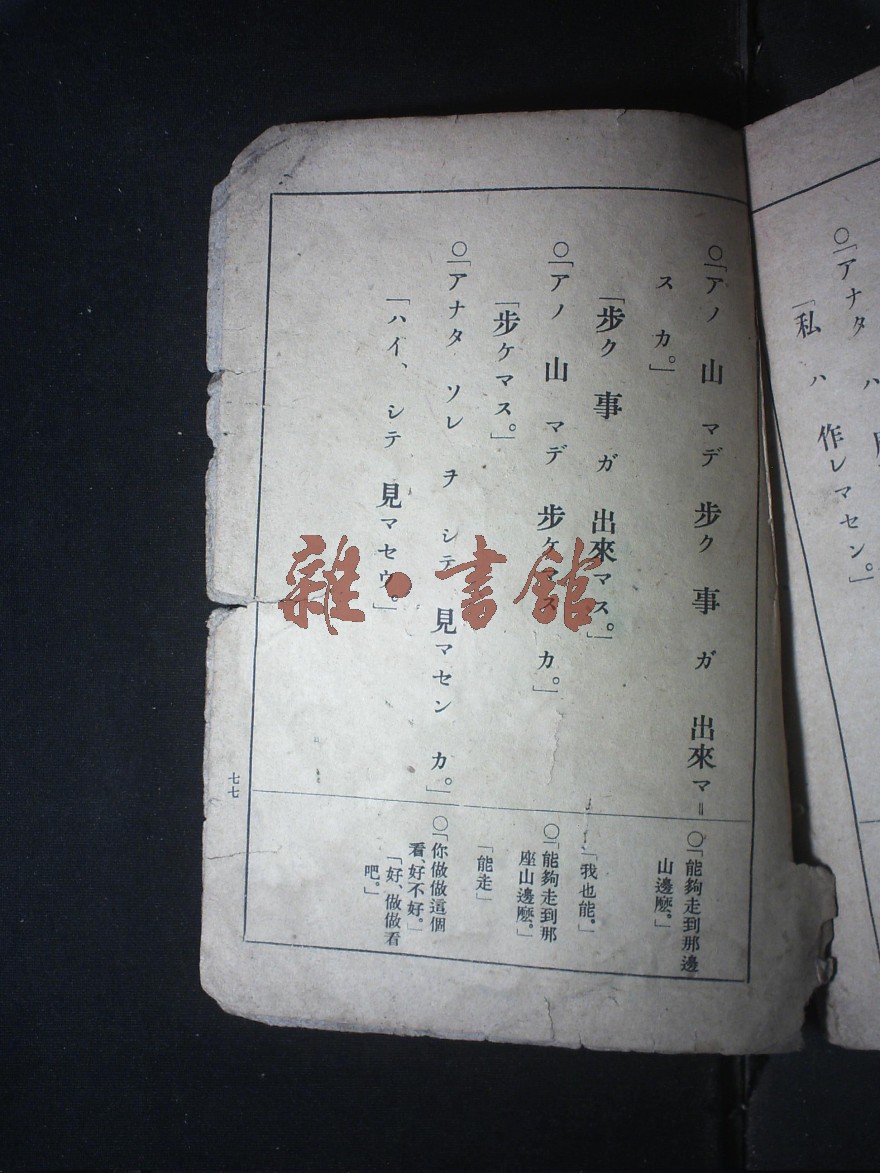 ○「アナタ ハ
「私 ハ 作レマセン。」
○「アノ 山 マデ 步ク 事 ガ 出來マ=
ス カ。」
「步ク 事 ガ 出來マス。」
○「アノ 山 マデ 步ケマス カ。」
「步ケマス。」
○「アナタ ソレ ヲ シテ 見マセン カ。」
「ハイ、シテ 見マセウ。」
○「能夠走到那邊
山邊麽。」
「我也能。」
○「能夠走到那
座山邊麽。」
「能走」
○「你做做這個
看、好不好。」
「好、做做看
吧。」
七七
雜·書館